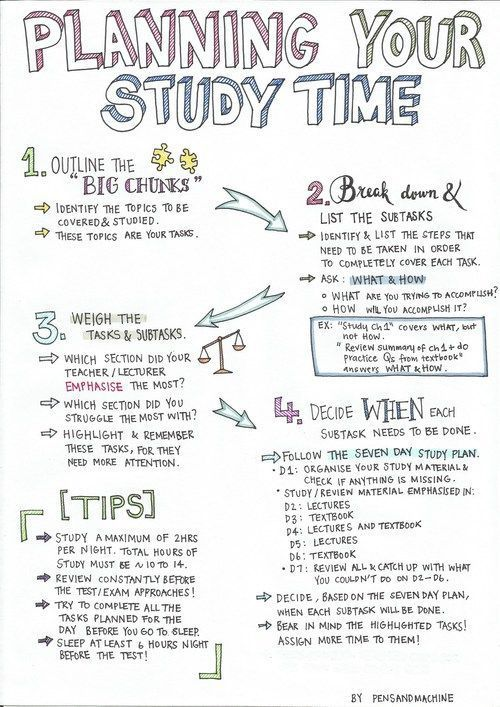 PLANNING YOUR
STUDY TIME
1. OUTLINE THE
"BIG CHUNKS"
IDENTIFY THE TOPICS TO BE
COVERED & STUDIED.
THESE TOPICS ARE YOUR TASKS.
2. Break down &
LIST THE SUBTASKS
IDENTIFY & LIST THE STEPS THAT
NEED TO BE TAKEN IN ORDER
TO COMPLETELY COVER EACH TASK.
ASK: WHAT & HOW
WHAT ARE YOU TRYING TO ACCOMPLISH?
HOW WILL YOU ACCOMPLISH IT?
EX: "Study Ch1" covers WHAT, but
not HOW.
"Review summary of ch1 + do
practice Qs from textbook"
answers WHAT & HOW.
3. WEIGH THE
TASKS & SUBTASKS.
WHICH SECTION DID YOUR
TEACHER/LECTURER
EMPHASISE THE MOST?
WHICH SECTION DID YOU
STRUGGLE THE MOST WITH?
HIGHLIGHT & REMEMBER
THESE TASKS, FOR THEY
NEED MORE ATTENTION.
4. DECIDE WHEN EACH
SUBTASK NEEDS TO BE DONE.
FOLLOW THE SEVEN DAY STUDY PLAN.
• D1: ORGANISE YOUR STUDY MATERIAL &
CHECK IF ANYTHING IS MISSING.
• STUDY/REVIEW MATERIAL EMPHASISED IN:
D2: LECTURES
D3: TEXTBOOK
D4: LECTURES AND TEXTBOOK
D5: LECTURES
D6: TEXTBOOK
• D7: REVIEW ALL & CATCH UP WITH WHAT
YOU COULDN'T DO ON D2-D6.
DECIDE, BASED ON THE SEVEN DAY PLAN,
WHEN EACH SUBTASK WILL BE DONE.
BEAR IN MIND THE HIGHLIGHTED TASKS!
ASSIGN MORE TIME TO THEM!
[TIPS]
STUDY A MAXIMUM OF 2HRS
PER NIGHT. TOTAL HOURS OF
STUDY MUST BE ~ 10 TO 14.
REVIEW CONSTANTLY BEFORE
THE TEST/EXAM APPROACHES!
TRY TO COMPLETE ALL THE
TASKS PLANNED FOR THE
DAY BEFORE YOU GO TO SLEEP.
SLEEP AT LEAST 6 HOURS NIGHT
BEFORE THE TEST!
BY PENSANDMACHINE